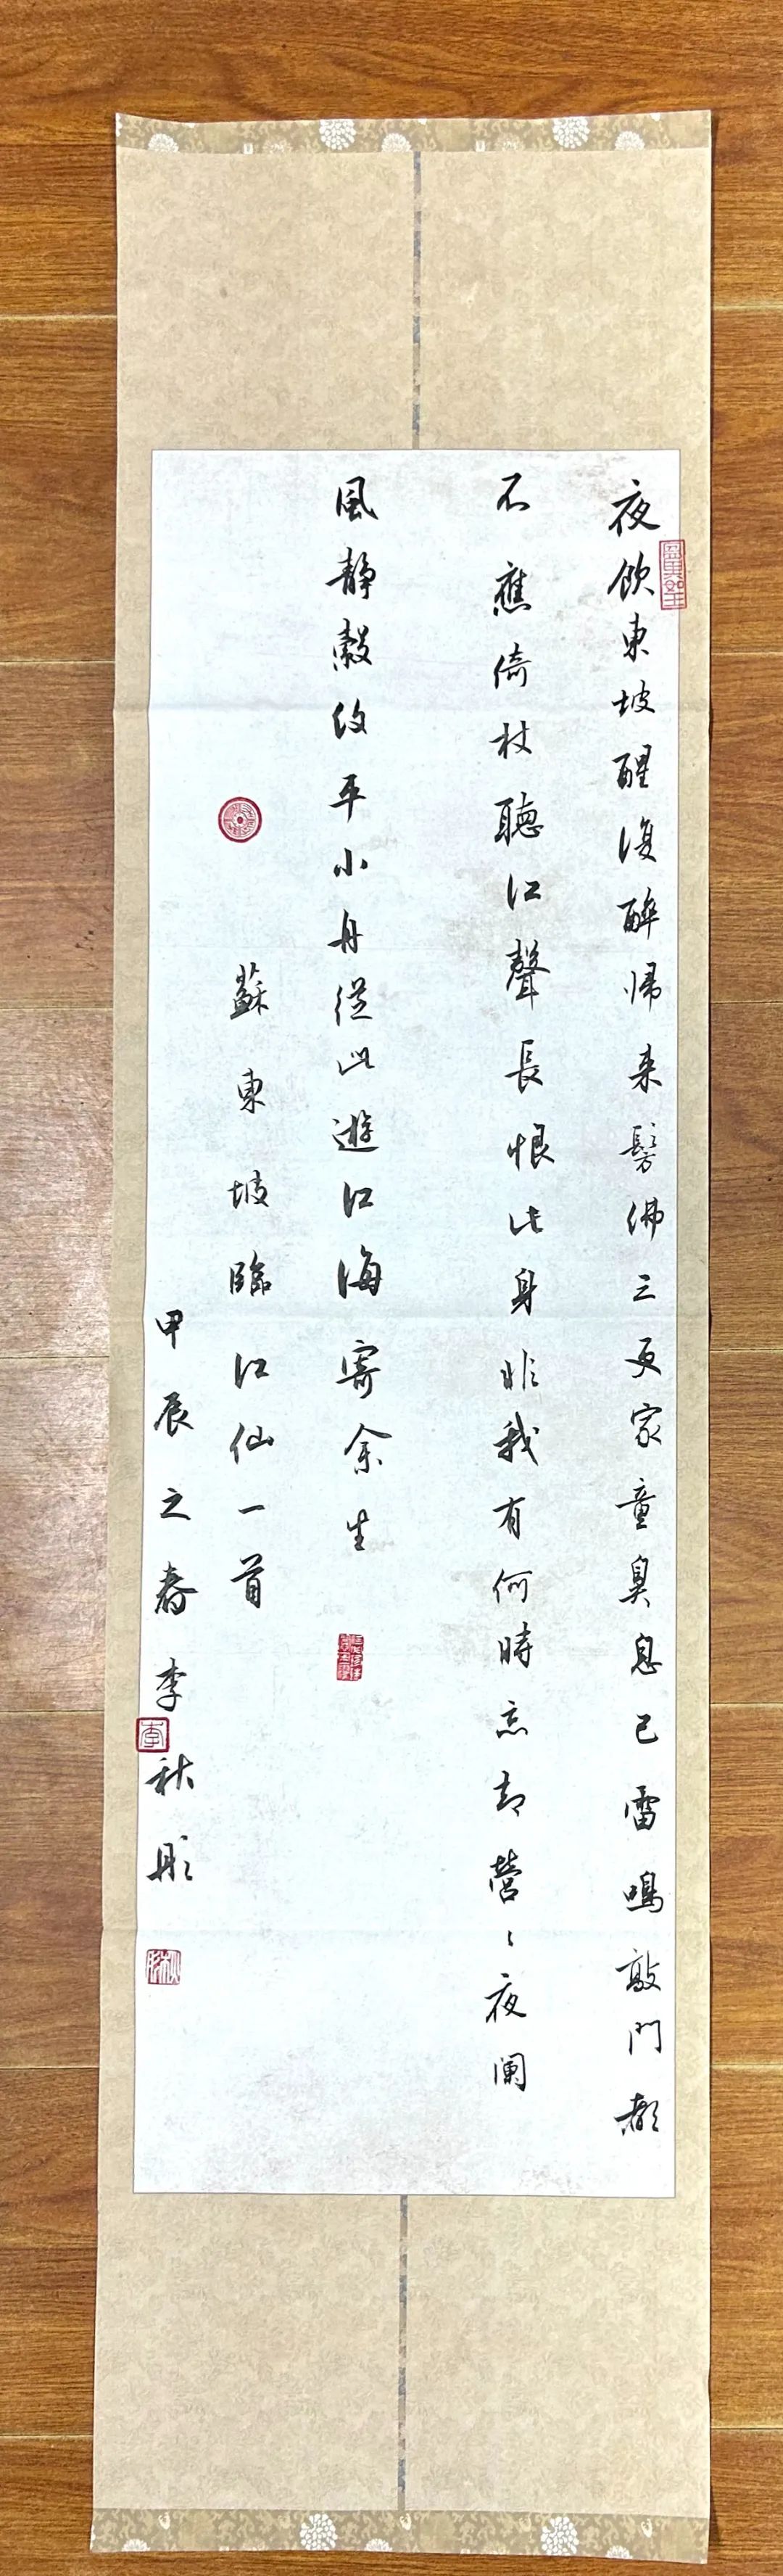 夜飲東坡醒復醉帰来髣佛三更家童臭息已雷鳴敲門都
不應倚杖聽江聲長恨此身非我有何時忘却營々夜闌
風静縠紋平小舟從此遊江海寄余生
蘇東坡臨江仙一首
甲辰之春李秋彤
李
秋彤